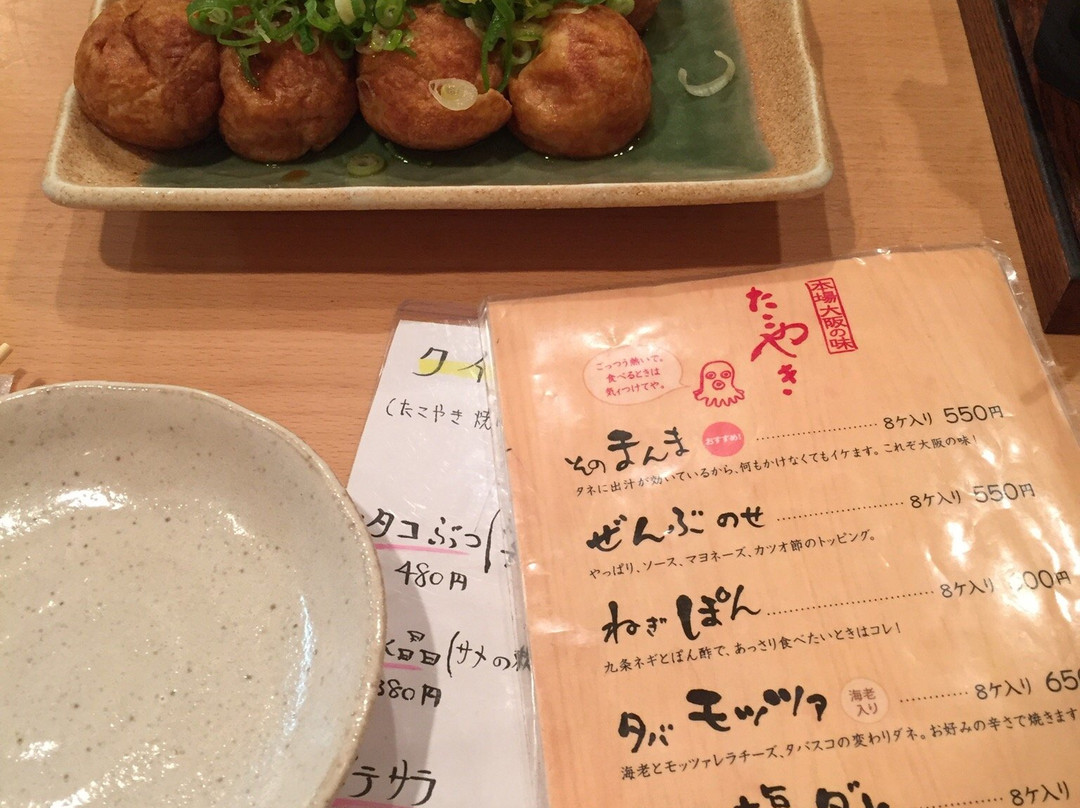 本場大阪の味
たこやき
ごっつう熱いで。
食べるときは
気ィつけてや。
そのまんま おすすめ! 8ケ入り 550円
タネに出汁が効いているから、何もかけなくてもイケます。これぞ大阪の味!
ぜんぶのせ 8ケ入り 550円
やっぱり、ソース、マヨネーズ、カツオ節のトッピング。
ねぎぽん 8ケ入り 00円
九条ネギとぽん酢で、あっさり食べたいときはコレ!
タバモッツァ 海老入り 8ケ入り 650
海老とモッツァレラチーズ、タバスコの変わりダネ。お好みの辛さで焼きます
8ケ入り
クイ
(たこやき焼
タコぶつ(
480円
晶(サメの
380円
テサラ